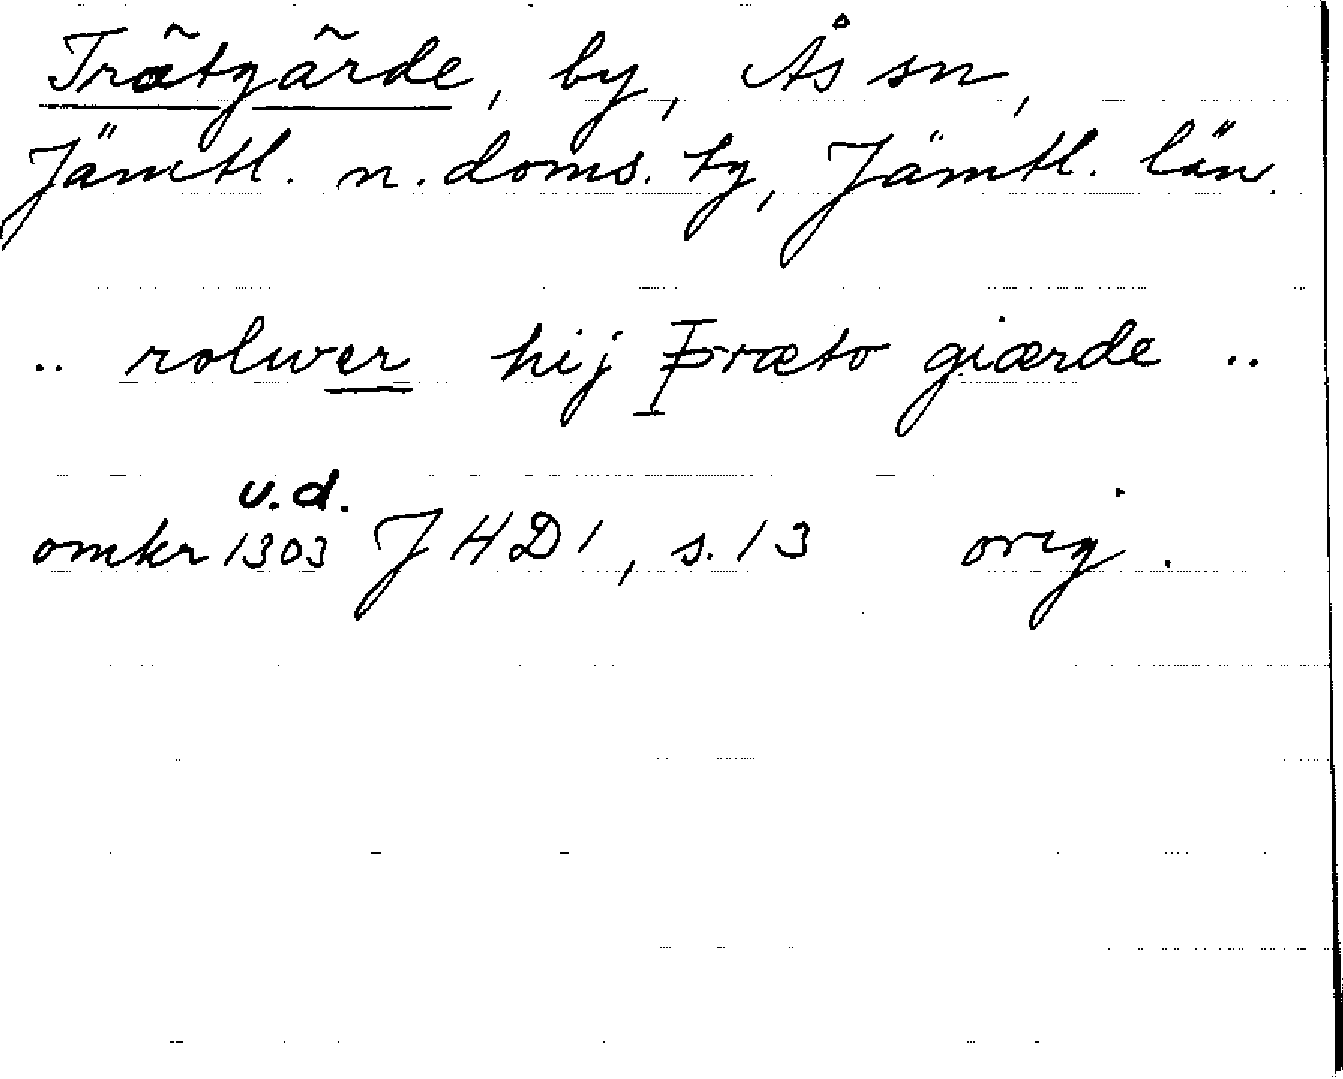 Trätgärde, by, Ås sn,
Jämtl. n. doms. tg, Jämtl. län.
.. rolwer hij Þræto giærde ..
u.d.
omkr 1303 JHD 1, s. 13 orig.